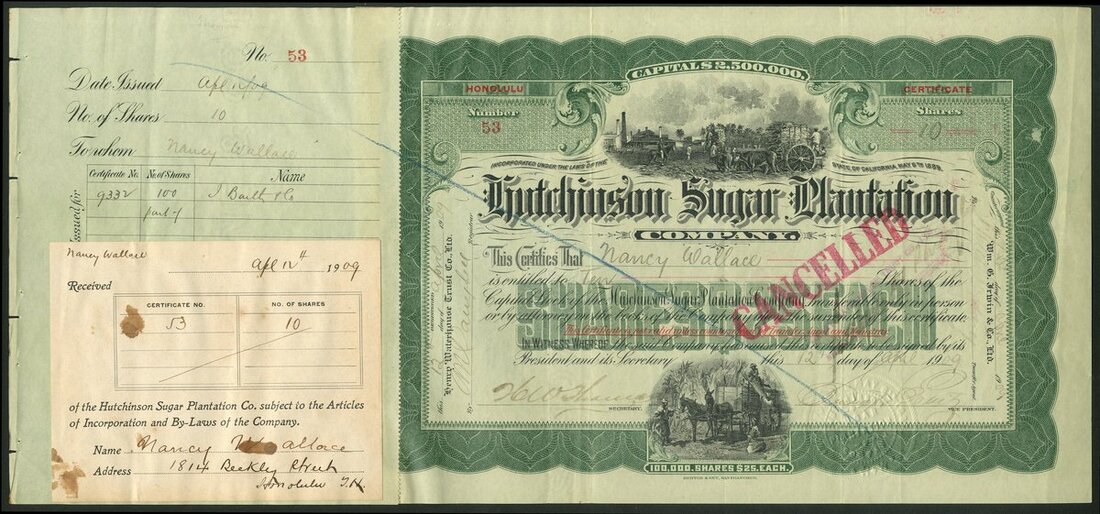 No. 53
Date Issued Apl 12/09
No. of Shares 10
To whom Nancy Wallace
Issued for
Certificate No. No. of Shares Name
9332 100
part of
Nancy Wallace
Apl 12th 1909
Received
CERTIFICATE NO. NO. OF SHARES
53 10
of the Hutchinson Sugar Plantation Co. subject to the Articles
of Incorporation and By-Laws of the Company.
Name Nancy Wallace
Address 1814 Street
Honolulu T.H.
CAPITAL $2,500,000.
HONOLULU CERTIFICATE
Number Shares
53 10
INCORPORATED UNDER THE LAWS OF THE STATE OF CALIFORNIA MAY 8TH 1889.
Hutchinson Sugar Plantation
COMPANY.
This Certifies That Nancy Wallace
is entitled to Ten Shares of the
Capital Stock of the Hutchinson Sugar Plantation Company transferable only in person
or by attorney on the books of the Company on the surrender of this certificate.
IN WITNESS WHEREOF the said Company has caused this certificate to be signed by its
President and its Secretary this 12th day of April 1909
SECRETARY. VICE PRESIDENT.
100,000. SHARES $25. EACH.
CANCELLED
this 12 day of April 1909
Henry Waterhouse Trust Co., Ltd.
By Registrar
Wm. G. Irwin & Co., Ltd.